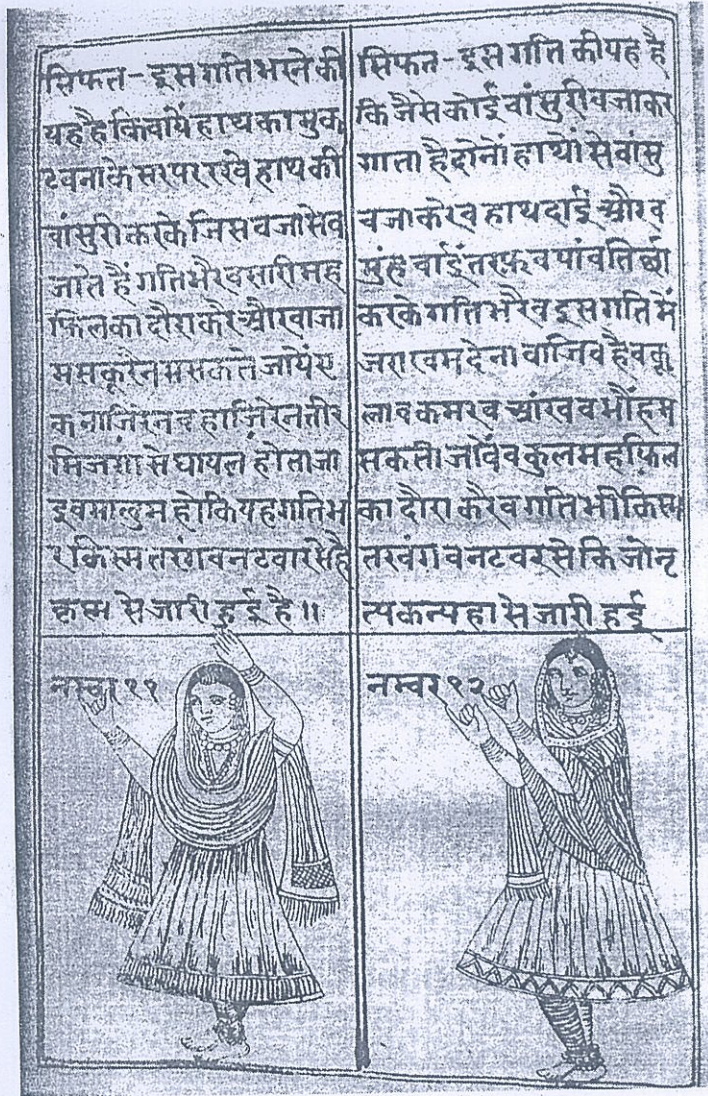 सिफत-इसगतिभरनेकी
यहहैकिबायेंहाथकामुक
टबनाकेसरपररखेहाथकी
वांसुरीकरकेजिसवजासेव
जातेहैंगतिभरैवसारीमह
फिलकादौराकरैऔरवाजा
मसकूरैनमसकतेजायेंए
कनाजिरेनवहाजिरेनतीर
मिजगांसेघायलहोताजा
इवमालुमहोकियहगतिभ
रकिस्मतरंगवनटवारसेहै
कृष्ण से जारी हुई है॥
सिफत-इस गति कीयह है
कि जैसे कोई वांसुरीवजाकर
गाता हैदोनों हाथोंसेवांसु
वजाकरेव हाथदाईं औरव
मुंह वाईंतरफवपांवतिर्छा
करके गतिभरैव इस गतिमें
जराखमदेना वाजिवहैवकू
लावकमरव आंखवभौंहम
सकती जावेंवकुलमहफिल
का दौरा करैवगतिभीकिस्म
तरवंगवनटवरसेकिजोनृ
त्यकन्यहासेजारी हुई
नम्वर११
नम्वर१२